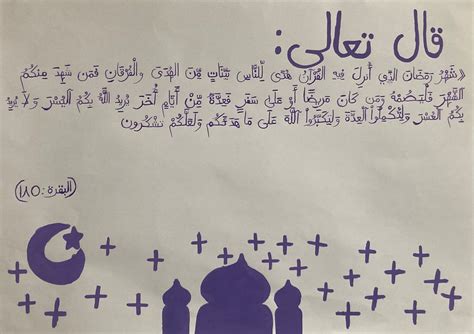 قال تعالى:
«شَهْرُ رَمَضَانَ الَّذِي أُنزِلَ فِيهِ الْقُرْآنُ هُدًى لِّلنَّاسِ بَيِّنَاتٍ مِّنَ الْهُدَى وَالْفُرْقَانِ فَمَن شَهِدَ مِنكُمُ
الشَّهْرَ فَلْيَصُمْهُ وَمَن كَانَ مَرِيضًا أَوْ عَلَى سَفَرٍ فَعِدَّةٌ مِّنْ أَيَّامٍ أُخَرَ يُرِيدُ اللَّهُ بِكُمُ الْيُسْرَ وَلَا يُرِيدُ
بِكُمُ الْعُسْرَ وَلِتُكْمِلُوا الْعِدَّةَ وَلِتُكَبِّرُوا اللَّهَ عَلَى مَا هَدَاكُمْ وَلَعَلَّكُمْ تَشْكُرُونَ
(البقرة: ١٨٥)